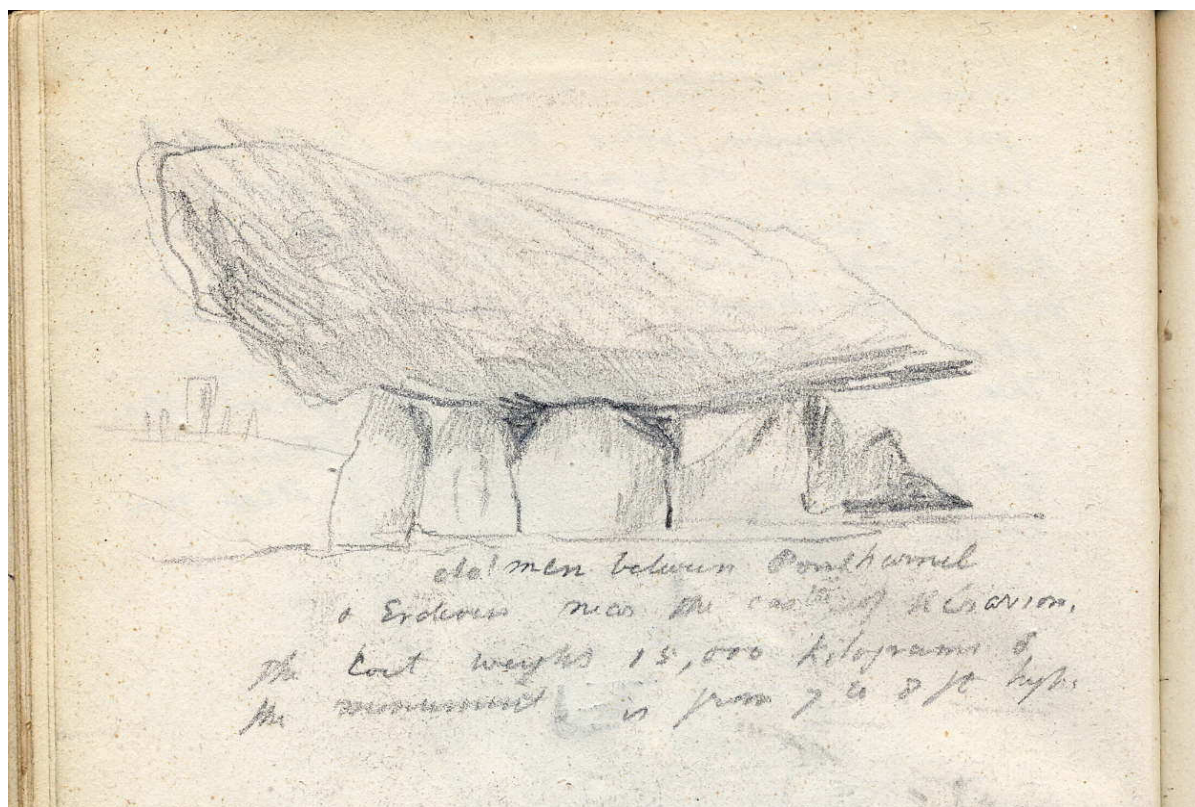 dolmen between
& Erdeven near the castle of Kéravion.
The weighs kilograms &
the monument is from 7 to 8 ft high.